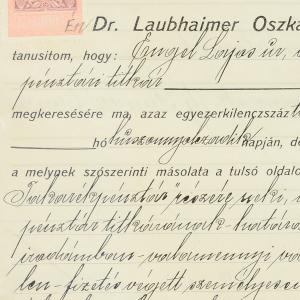 Én Dr. Laubhaimer Oszká
tanusitom, hogy: Engel Lajos úr, a
pénztári titkár
megkeresésére ma, azaz egyezerkilenczszáz t
hó huszonnyolczadik napján, de
a melynek szószerinti másolata a tulsó oldalo
Takarékpénztár" részére, neki,
pénztár titkárának határo
irodámban valamennyi vá
len fizetés végett személyese